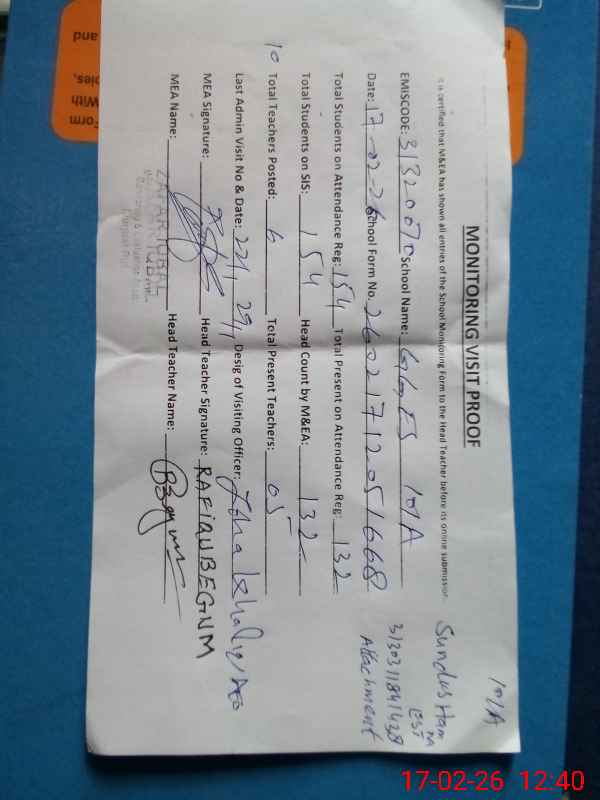 101/A
MONITORING VISIT PROOF
It is certified that M&EA has shown all entries of the School Monitoring Form to the Head Teacher before its online submission.
Sundus
EST
Attachment
EMISCODE: 31320070 School Name: GGES 101A
Date: 17-02-26 School Form No. 26021712051668
Total Students on Attendance Reg: 154 Total Present on Attendance Reg: 132
Total Students on SIS: 154 Head Count by M&EA: 132
10 Total Teachers Posted: 6 Total Present Teachers: 05
Last Admin Visit No & Date: 221, 29/1 Desig of Visiting Officer:
MEA Signature: Head Teacher Signature: RAFIQUBEGNM
MEA Name: Head Teacher Name:
ZAFAR IQBAL
Form
With
and
17-02-26 12:40